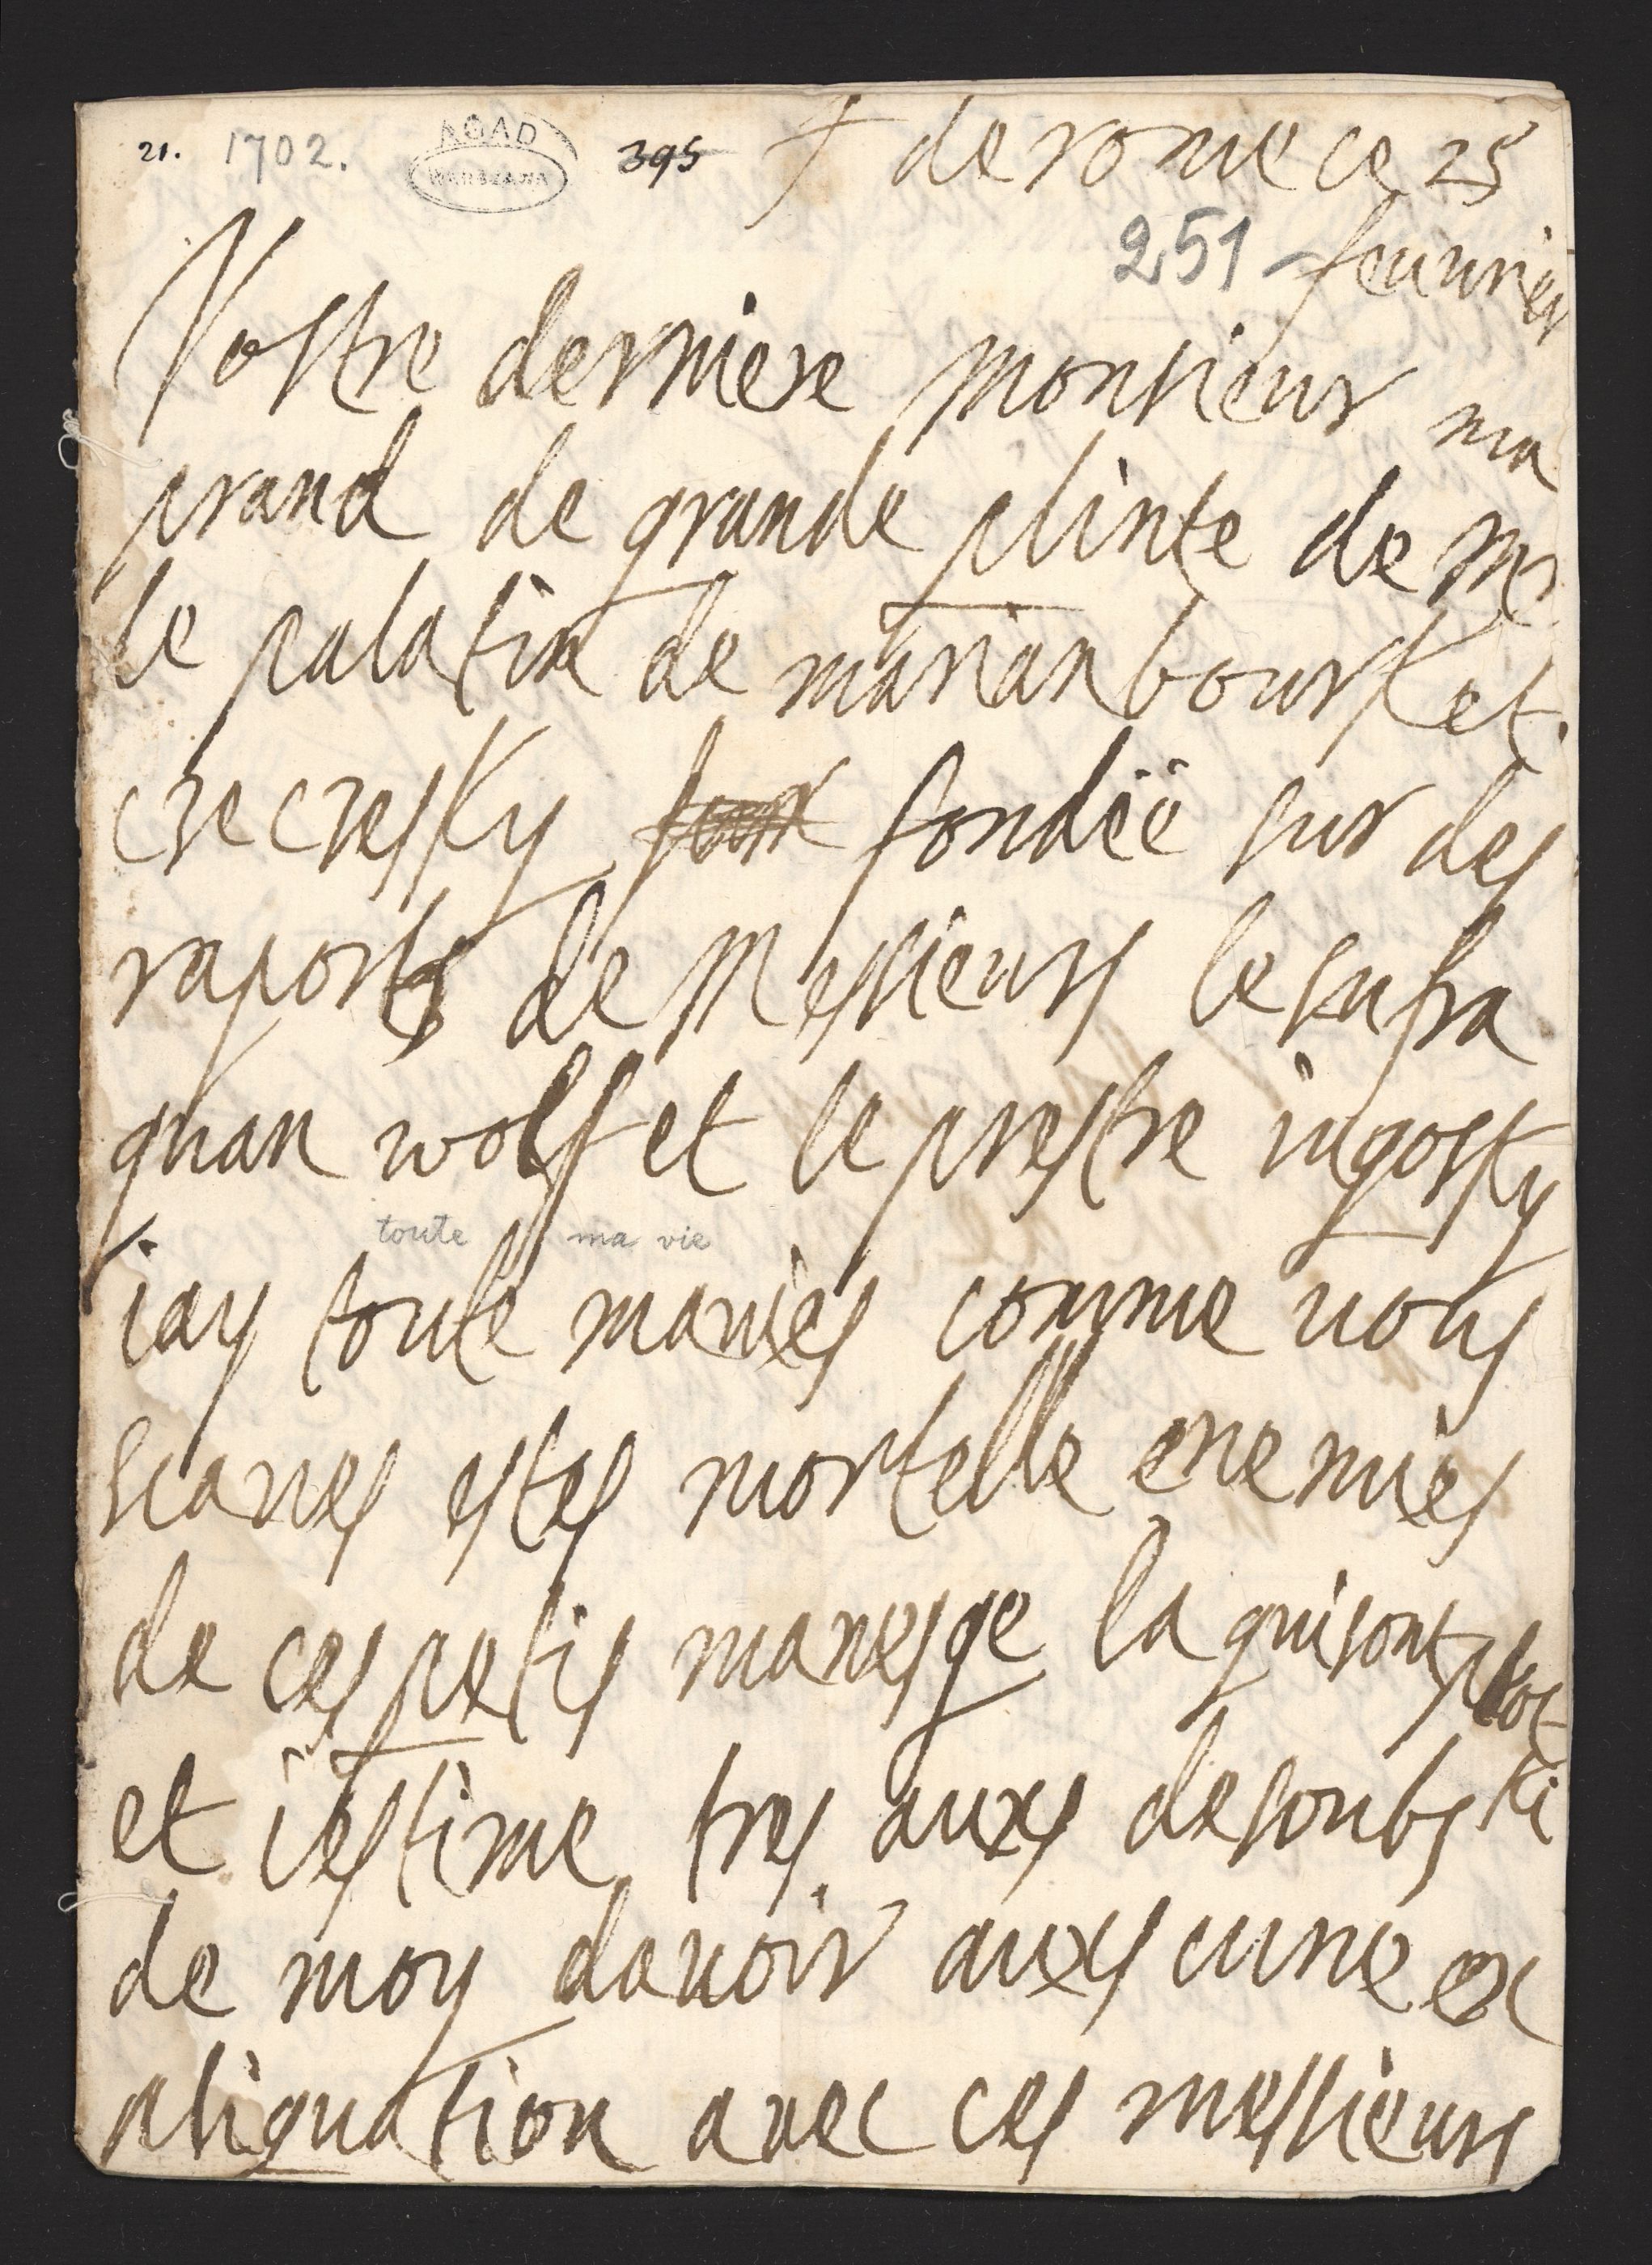 21. 1702. AGAD WARSZAWA 395 † de rome ce 25
251 feuurier
Vostre derniere monsieur ma
prand de grande plinte de mr
le palatin de marianbourk et
crecresky fondëe sur des
raports de messieurs le sufra
guan wolf et le prestre ingosky
toute ma vie
iay toute mavies comme vous
scaves estes mortelle enemies
de ces petis manesge la qui sont plos
ki
et iestime tres auxs desoubs
de moy davoir auxcune ex
pliquation avec ces messieurs